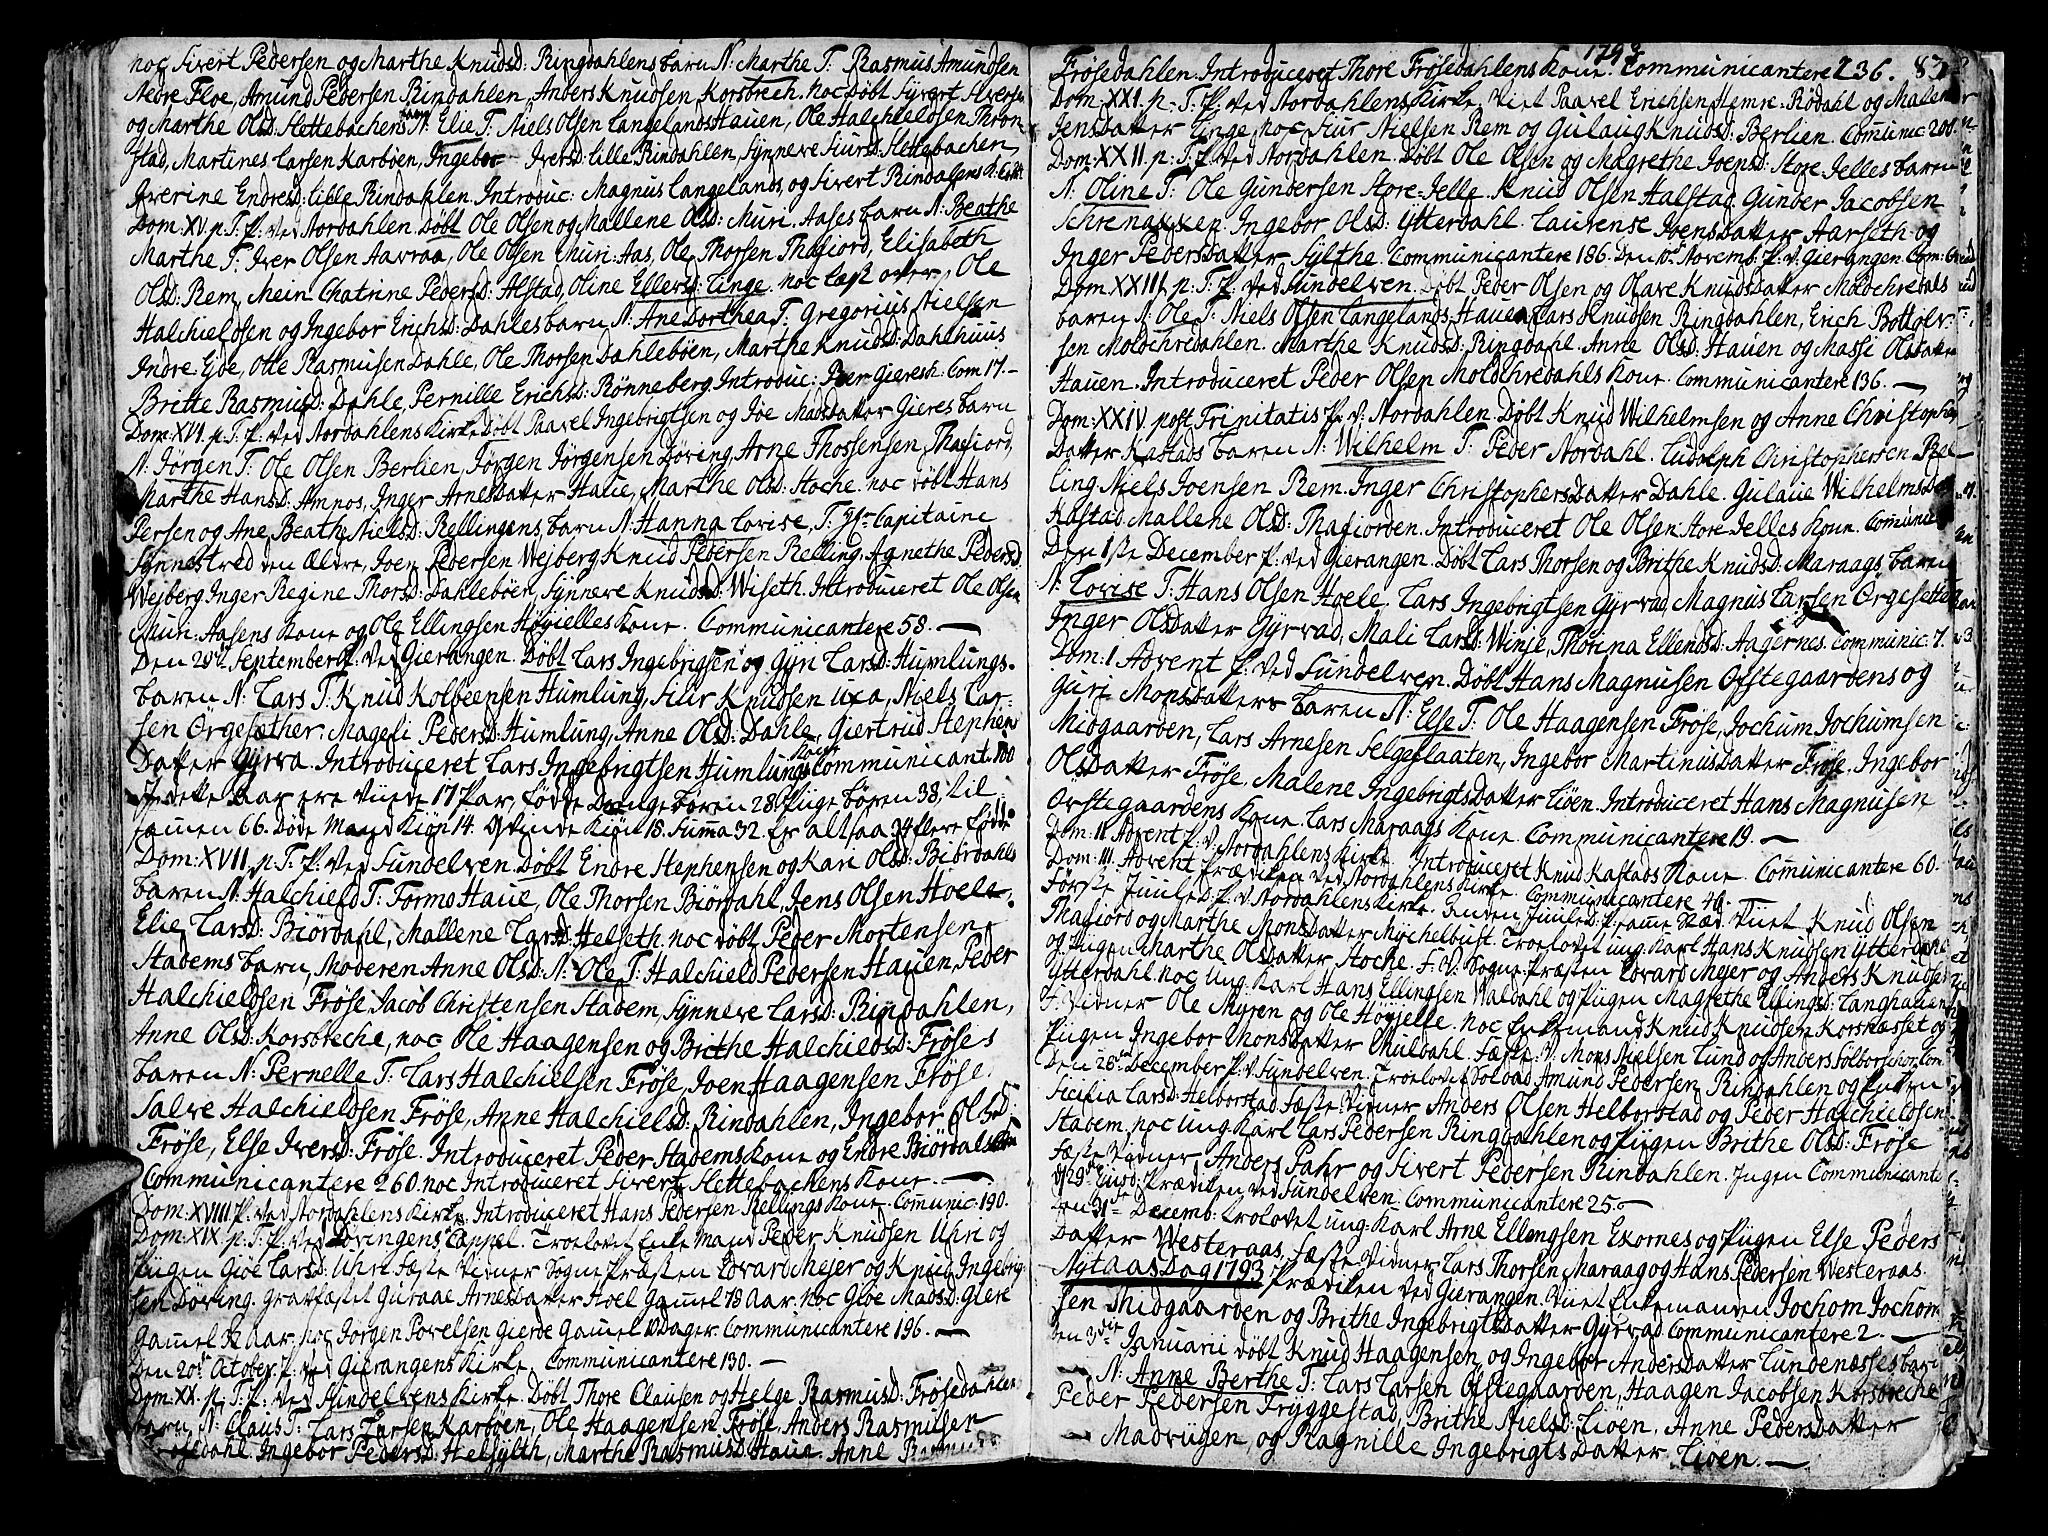 noc Sivert Pedersen og Marthe Knudsd: Ringdahlens barn N: Marthe T: Rasmus Amundsen
Nedre Floe, Amund Pedersen Rindahlen, Anders Knudsen Korsbrech. noc Döbt Syvert Sivertsen
og Marthe Olsd: Slettebachens barn N: Elie T: Niels Olsen Langelands Hauen, Ole Halchieldsen Thron-
stad, Martines Larsen Karböen, Ingebor Iversd: Lille Rindahlen, Synneve Siursd: Slettebachen
Iverine Endresd: Lille Rindahlen. Introduc: Magnus Langelands, og Sivert Rindalens
Dom: XV. p. T. P. ved Nordahlen. Döbt Ole Olsen og Mallene Olsd: Muri-Aases barn N: Beathe
Marthe T: Iver Olsen Aavraa, Ole Olsen Muri-Aas, Ole Thorsen Thafiord, Elisabeth
Olsd: Rem, Mein Chatrine Pedersd: Alstad, Oline Ellersd: Linge. noc læst over, Ole
Halchieldsen og Ingebor Erichsd: Dahles barn N: Ane Dorthea T: Gregorius Nielsen
Indre-Eide, Otte Rasmusen Dahle, Ole Thorsen Dahleböen, Marthe Knudsd: Dahlhuus
Britte Rasmusd: Dahle, Pernille Erichsd: Rönneberg. Introduc: Com 17.—
Dom: XVI. p. T. P. ved Nordahlens Kirke Döbt Paavel Ingebrigtsen og Jöe Madsdatter Gieres barn
N: Jörgen T: Ole Olsen Berlien, Jörgen Jörgensen Döving, Arne Thossensen Thafiord,
Marthe Hansd: Amnos, Inger Arnesdatter Haue, Marthe Olsd: Hoche. noc döbt Hans
Persen og Ane Beathe Nielsd: Rellingens barn N: Hanna Lovise, T: Hr. Capitaine
Synnestved den Ældre, Joen Pedersen Wejberg Knud Pedersen Relling. Agnethe Pedersd:
Wejberg Inger Regine Thorsd: Dahleböen, Synneve Knudsd: Wiseth. Introduceret Ole Olsen
Muri-Aasens Kone og Ole Ellingsen Högielles Kone. Communicantere 58.—
Den 29de September P. ved Gierangen. Döbt Lars Ingebrigtsen og Gyri Larsd: Humlungs-
baren N: Lars T. Knud Kolbeensen Humlung, Siur Knudsen Uxa, Niels Lar-
sen Örgesæther. Mageli Pedersd: Humlung, Anne Olsd: Dahle, Giertrud Stephens
Datter Gyrva. Introduceret Lars Ingebrigtsen Humlungs Kone Communicant. 100
I dette Aar ere viede 17 Par, Födde Drenge börn 28 Pige börn 38, til-
samen 66. Döde Mand Kiön 14. Qvinde Kiön 18. Summa 32. Er altsaa 34 flere födde
Dom: XVII. p. T. P. ved Sundelven. Döbt Endre Stephensen og Kari Olsd: Biördahls
baren N. Halchield T: Tormo Haue, Ole Thorsen Biördahl, Jens Olsen Hoele.
Elie Larsd: Biördahl, Mallene Larsd: Helseth. noc döbt Peder Mortensen
Stadems barn, Moderen Anne Olsd: N: Ole T: Halchield Pedersen Hauen, Peder
Halchieldsen Fröse, Jacob Christensen Stadem, Synneve Larsd: Rindahlen,
Anne Olsd: Korsbreche, noc Ole Haagensen og Brithe Halchieldsd: Fröses
baren N: Pernelle T: Lars Halchielsen Fröse, Joen Haagensen Fröse.
Salve Halchieldsen Fröse, Anne Halchielsd: Rindahlen, Ingebor Olsd:
Fröse, Else Iversd: Fröse. Introduceret Peder Stadems Kone og Endre Biördals Kone
Communicantere 260. noc Introduceret Sivert Slettebachens Kone.—
Dom: XVIII P. ved Nordahlens Kirke. Introduceret Hans Pedersen Rellings Kone. Communic: 190.
Dom: XIX p. T. P. ved Dövingens Cappel. Troelovet Enke Mand Peder Knudsen Uhri og
Pigen Giöe Larsd: Uhri. Fæste Vidner Sogne Præsten Edvard Mejer og Knud Ingebrigt-
sen Döving. Gravfæstet Guraae Arnesdatter Hoel Gamel 78 Aar. noc Giöe Madsd: Giere
Gamel 42 Aar. noc Jörgen Povelsen Gierde Gamel 10 Dager. Communicantere 196.—
Den 20de October P. ved Gierangens Kirke Communicantere 130.—
Dom: XX. p. T. P. ved Sundelvens Kirke. Döbt Thore Clausen og Helge Rasmusd: Frösedahlens
barn N: Claus T: Lars Larsen Karböen, Ole Haagensen Fröse, Anders Rasmusen
Frösedahl. Ingebor Pedersd: Helsylth, Marthe Rasmusd: Haue. Anne Rasmusd:
1792 83
Frösedahlen. Introduceret Thore Frösedahlens Kone. Communicantere 236.
Dom XXI. p. T. P. ved Nordahlens Kirke viet Paavel Erichsen Hemre-Rödahl og Malene
Jensdatter Linge, noc Siur Nielsen Rem og Gulaug Knudsd: Berlien. Communic: 200.
Dom: XXII. p. T. P. ved Nordahlen. Döbt Ole Olsen og Magrethe Joensd: Store Jelles baren
N: Oline T: Ole Gundersen Store-Jelle. Knud Olsen Halstad, Gunder Jacobsen
Schrenakken Ingebor Olsd: Ytterdahl. Laurense Ivensdatter Aarseth og
Inger Pedersdatter Sylthe. Communicantere 186. Den 10de Novemb. P. v. Gierangen Com:
Dom: XXIII. p. T. P. ved Sundelven. Döbt Peder Olsen og Olave Knudsdatter Moldchredals
baren N. Ole T: Niels Olsen Langelands Hauen Lars Knudsen Ringdahlen, Erich Bottolv-
sen Moldchredahlen. Marthe Knudsd: Ringdahl. Anne Olsd: Hauen og Massi Olsdatter
Hauen. Introduceret Peder Olsen Moldchredahls Kone. Communicantere 136.—
Dom: XXIV. post Trinitatis P. v. Nordahlen. Döbt Knud Wilhelmsen og Anne Christophers
Datter Kastads baren N: Wilhelm T: Peder Nordahl. Ludolph Christophersen Rel-
ling Niels Joensen Rem. Inger Christophersdatter Dahle. Gulaue Wilhelmsd:
Kastad Mallene Olsd: Thafiorden. Introduceret Ole Olsen Store-Jelles Kone. Communic
Den 1ste December P. ved Gierangen. Döbt Lars Thorsen og Brithe Knudsd: Maraags baren
N: Lovise T: Hans Olsen Hoele. Lars Ingebrigtsen Gyrvad, Magnus Larsen Örgesætter
Inger Olsdatter Gyrvad, Mali Larsd: Winje, Thorina Ellensd: Aagernes. Communic: 7.
Dom: 1 Advent P. ved Sundelven. Döbt Hans Magnusen Ofstegaardens og
Guri Monsdatters baren N: Else T: Ole Haagensen Fröse, Jochum Jochumsen
Midgaarden, Lars Arnesen Selgeflaaten, Ingebor Martinusdatter Fröse. Ingebor
Olsdatter Fröse. Malene Ingebrigtsdatter Liöen. Introduceret Hans Magnusen
Ofstegaardens Kone. Lars Maraags Kone. Communicantere 19.—
Dom: II Advent P. v. Nordahlens Kirke. Introduceret Knud Kastads Kone. Communicantere 60.
Dom: III. Advent Prædiken ved Nordahlens Kirke. Communicantere 46.
Förste Juuled: P. v. Nordahlens Kirke. Anden Juuled: P. samme Stæd. Viiet Knud Olsen
Thafiord og Marthe Monsdatter Mychelbust. Troelovet ung Karl Hans Knudsen Ytterdahl
og Pigen Marthe Olsdatter Hoche. F. V. Sogne Præsten Edvard Mejer og Anders Knudsen
Ytterdahl noc ung Karl Hans Ellingsen Valdahl og Pigen Magrethe Ellingsd: Langhauen
F. Vidner Ole Myren og Ole Höyjelle. noc Enkemand Knud Knudsen Korsnæsset og
Pigen Ingebor Monsdatter Muldahl. Fæste V. Mons Nielsen Lund og Anders Solborschor. Com
Den 26de December P. v. Sundelven. Troelovet Soldad Amund Pedersen Rindahlen og Enken
Sicilia Larsd: Helborstad Fæste-Vidner Anders Olsen Helborstad og Peder Halchieldsen
Stadem. noc ung Karl Lars Pedersen Ringdahlen og Pigen Brithe Olsd: Fröse
Fæste Vidner Anders Fahr og Sivert Pedersen Rindahlen. Ingen Communicante
Prædiken ved Sundelven. Communicantere 25.—
Den 31te Decemb: trolovet ung-Karl Arne Ellingsen Exornes og Pigen Else Peders
Datter Westeraas, Fæste-Vidner Lars Thorsen Maraag og Hans Pedersen Westeraas.
Nytaas Dag 1793 Prædiken ved Gierangen. Viiet Enkemanden Jochom Jochom
sen Midgaarden og Brithe Ingebrigtsdatter Gyrvad. Communicantere 2.—
Den 3die Januarii döbt Knud Haagensen og Ingebor Andersdatter Lundenæsses barn
N: Anne Berthe T: Lars Larsen Ofstegaarden, Haagen Jacobsen Korsbreche
Peder Pedersen Tryggestad, Brithe Nielsd: Liöen, Anne Pedersdatter
Madvigen, og Ragnille Ingebrigtsdatter Liöen.—